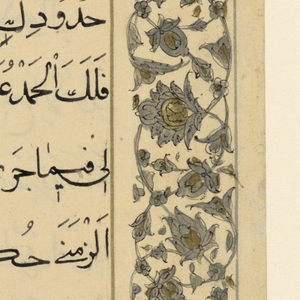 حُدُودِكَ
فَلَكَ الْحَمْدُ عَ
لى فيما جرى
اَلْزَمَنى حُك